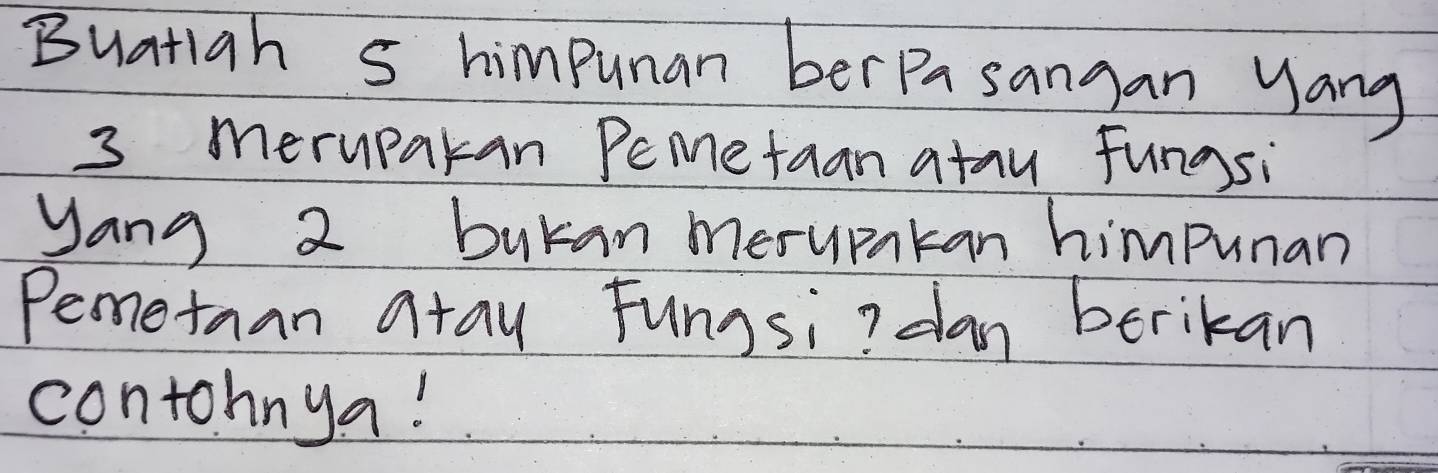 Buatlah 5 himpunan berpasangan yang
3 merupakan Pemetaan atau fungsi
yang 2 bukan merupakan himpunan
Pemetaan atau Fungsi? dan berikan
contohnya!